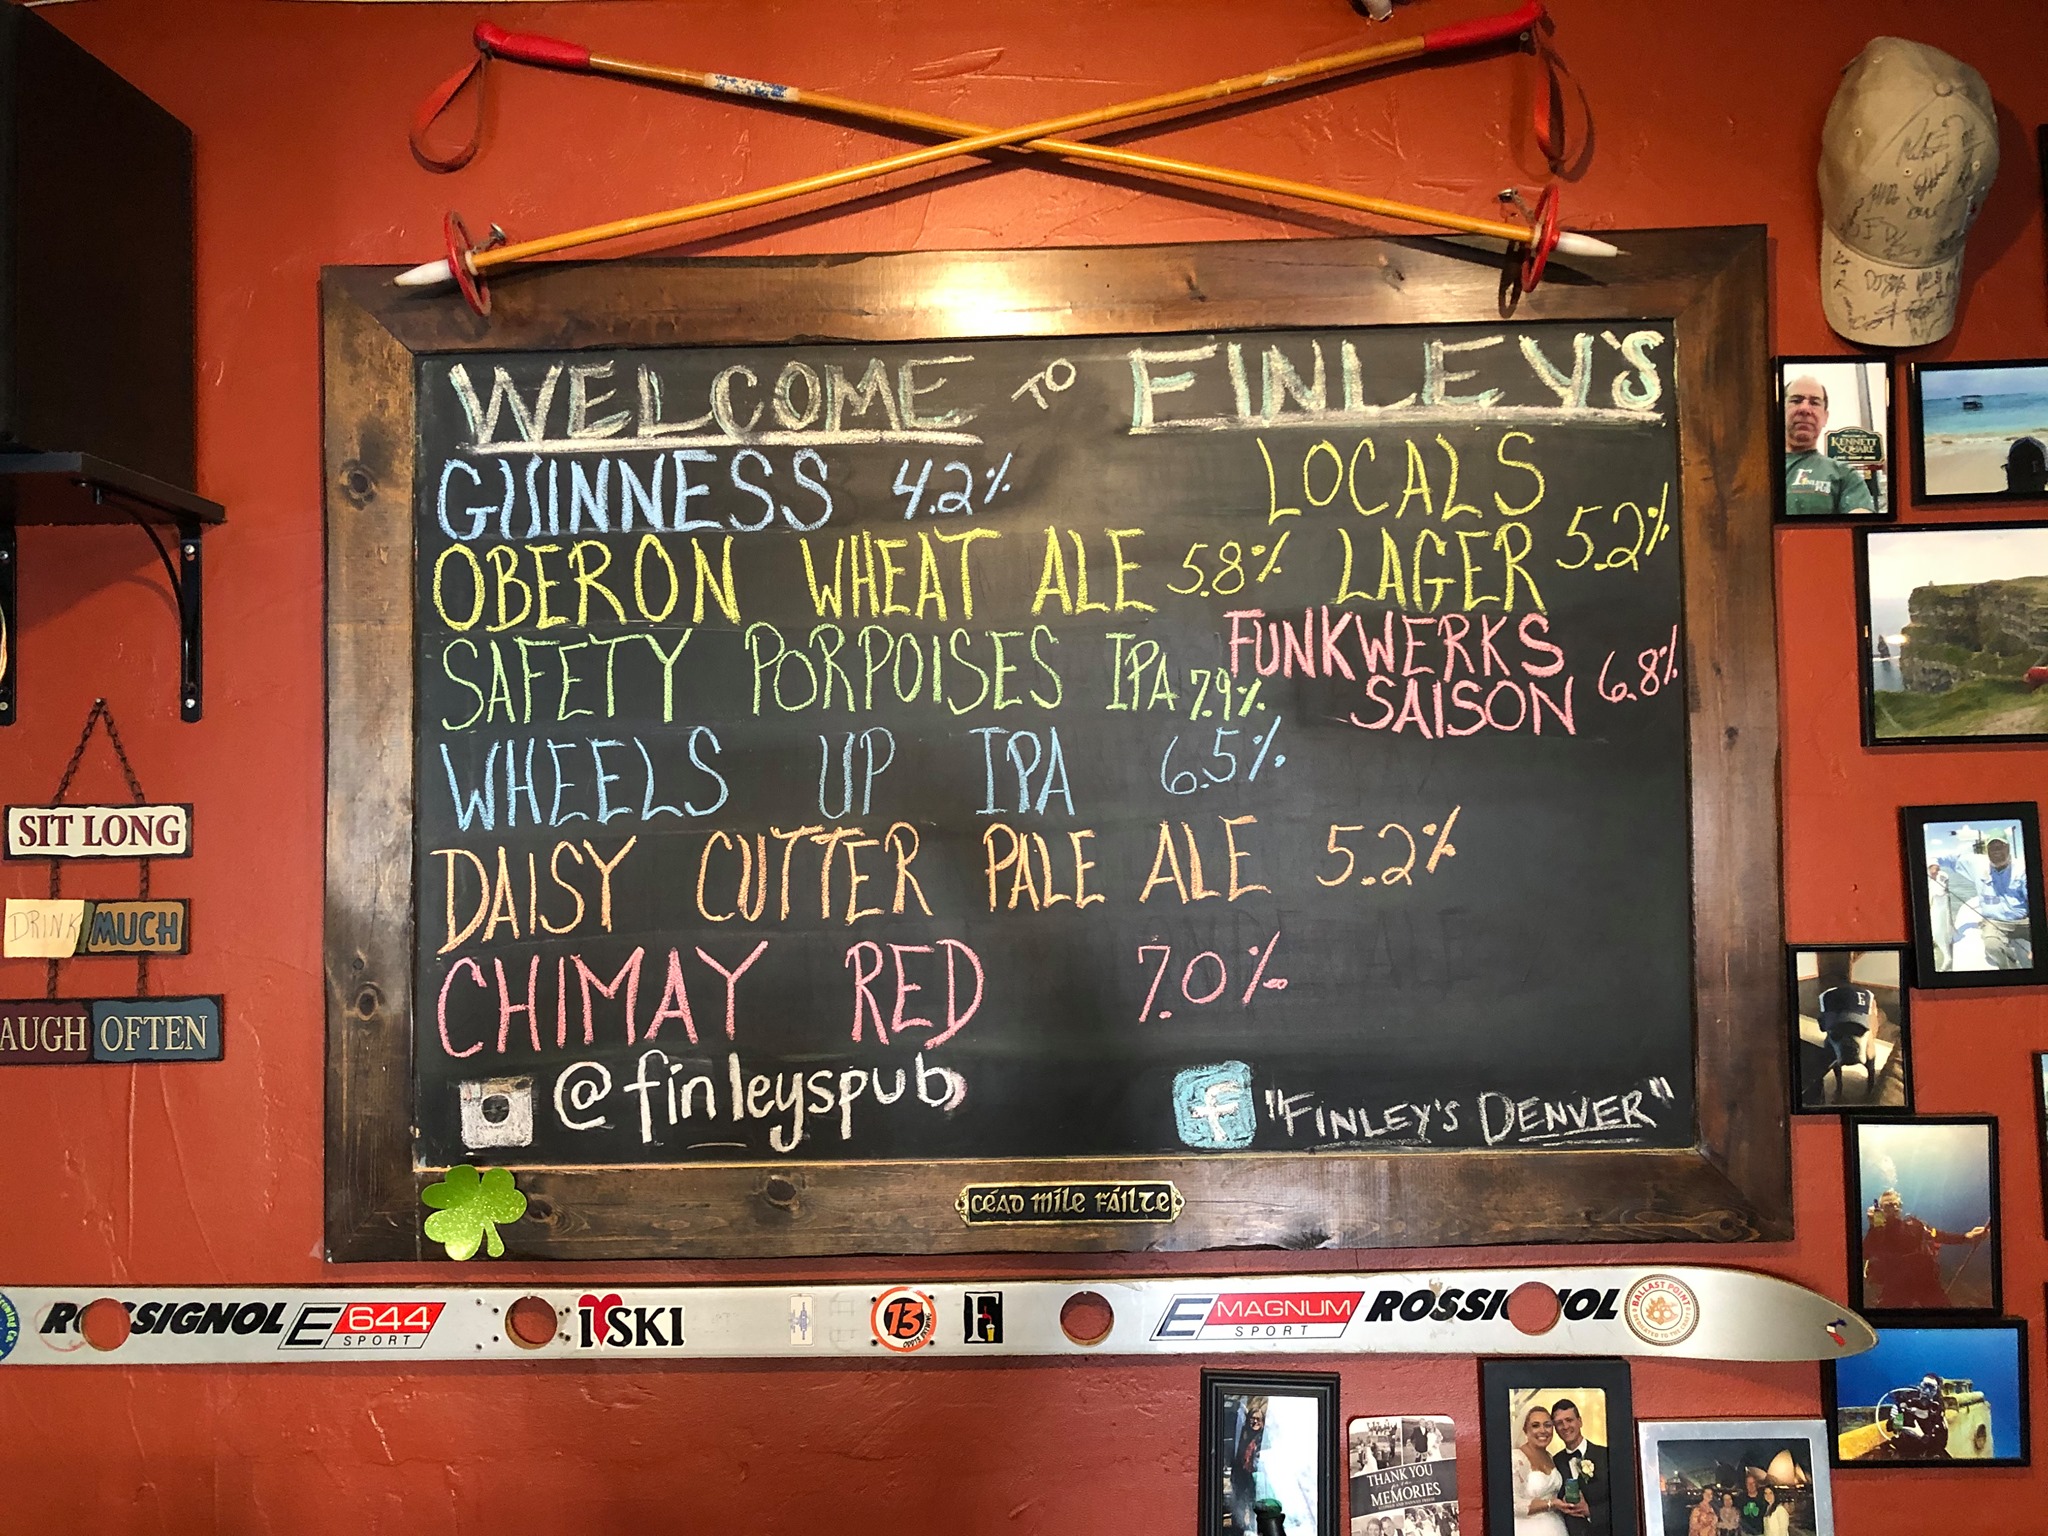 WELCOME TO FINLEY'S
GUINNESS 4.2%
OBERON WHEAT ALE 5.8%
SAFETY PORPOISES IPA 7.9%
WHEELS UP IPA 6.5%
DAISY CUTTER PALE ALE 5.2%
CHIMAY RED 7.0%
LOCALS
LAGER 5.2%
FUNKWERKS
SAISON 6.8%
@finleyspub
f "FINLEY'S DENVER"
CÉAD MÍLE FÁILTE
SIT LONG
DRINK MUCH
AUGH OFTEN
KENNETT
SQUARE
ROSSIGNOL E 644
SPORT
I SKI
13
F
E MAGNUM
SPORT
ROSSIGNOL
BALLAST POINT
DEDICATED TO THE CRAFT
THANK YOU
MEMORIES